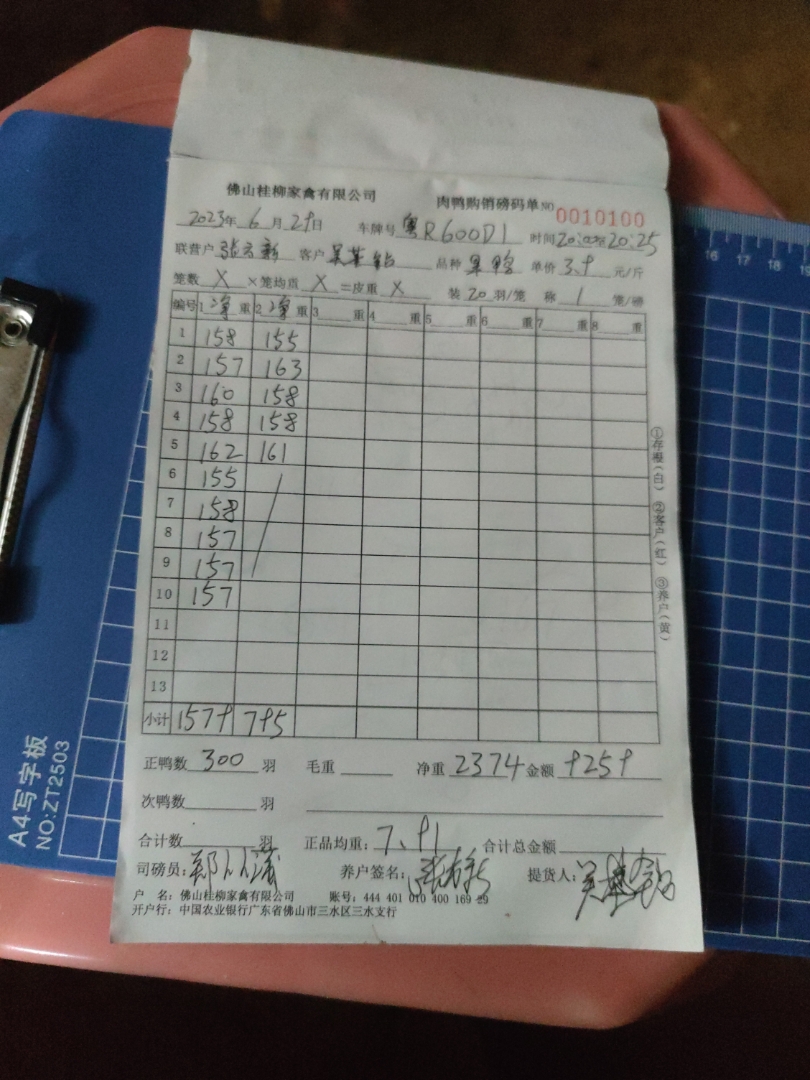 佛山桂柳家禽有限公司 肉鸭购销磅码单 NO 0010100
2023年 6月 29日 车牌号 粤R600D1 时间 20:25
联营户 客户 品种 单价 3.9 元/斤
笼数 X ×笼均重 X =皮重 X 装 20 羽/笼 称 1 笼/磅
编号 1 净 重 2 净 重 3 重 4 重 5 重 6 重 7 重 8 重
1 158 155
2 157 163
3 160 158
4 158 158
5 162 161
6 155
7 158
8 157
9 157
10 157
11
12
13
小计 1579 795
正鸭数 300 羽 毛重 净重 2374 金额 9259
次鸭数 羽
合计数 羽 正品均重: 7.91 合计总金额
司磅员: 养户签名: 提货人:
户 名: 佛山桂柳家禽有限公司 账号: 444 401 010 400 169 29
开户行: 中国农业银行广东省佛山市三水区三水支行
①存根(白) ②客户(红) ③养户(黄)
A4写字板
NO:ZT2503
16 17 18 19